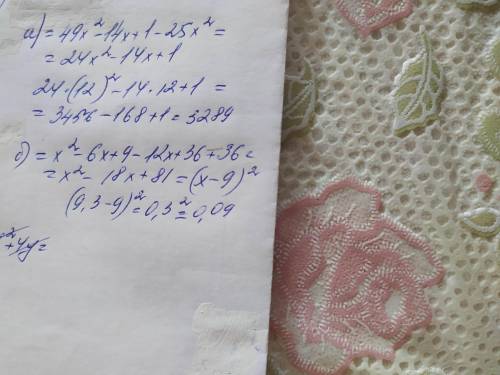 а) = 49x² - 14x + 1 - 25x² =
= 24x² - 14x + 1
24 · (12)² - 14 · 12 + 1 =
= 3456 - 168 + 1 = 3289
б) = x² - 6x + 9 - 12x + 36 + 36 =
= x² - 18x + 81 = (x - 9)²
(9,3 - 9)² = 0,3² = 0,09
+ 4y =